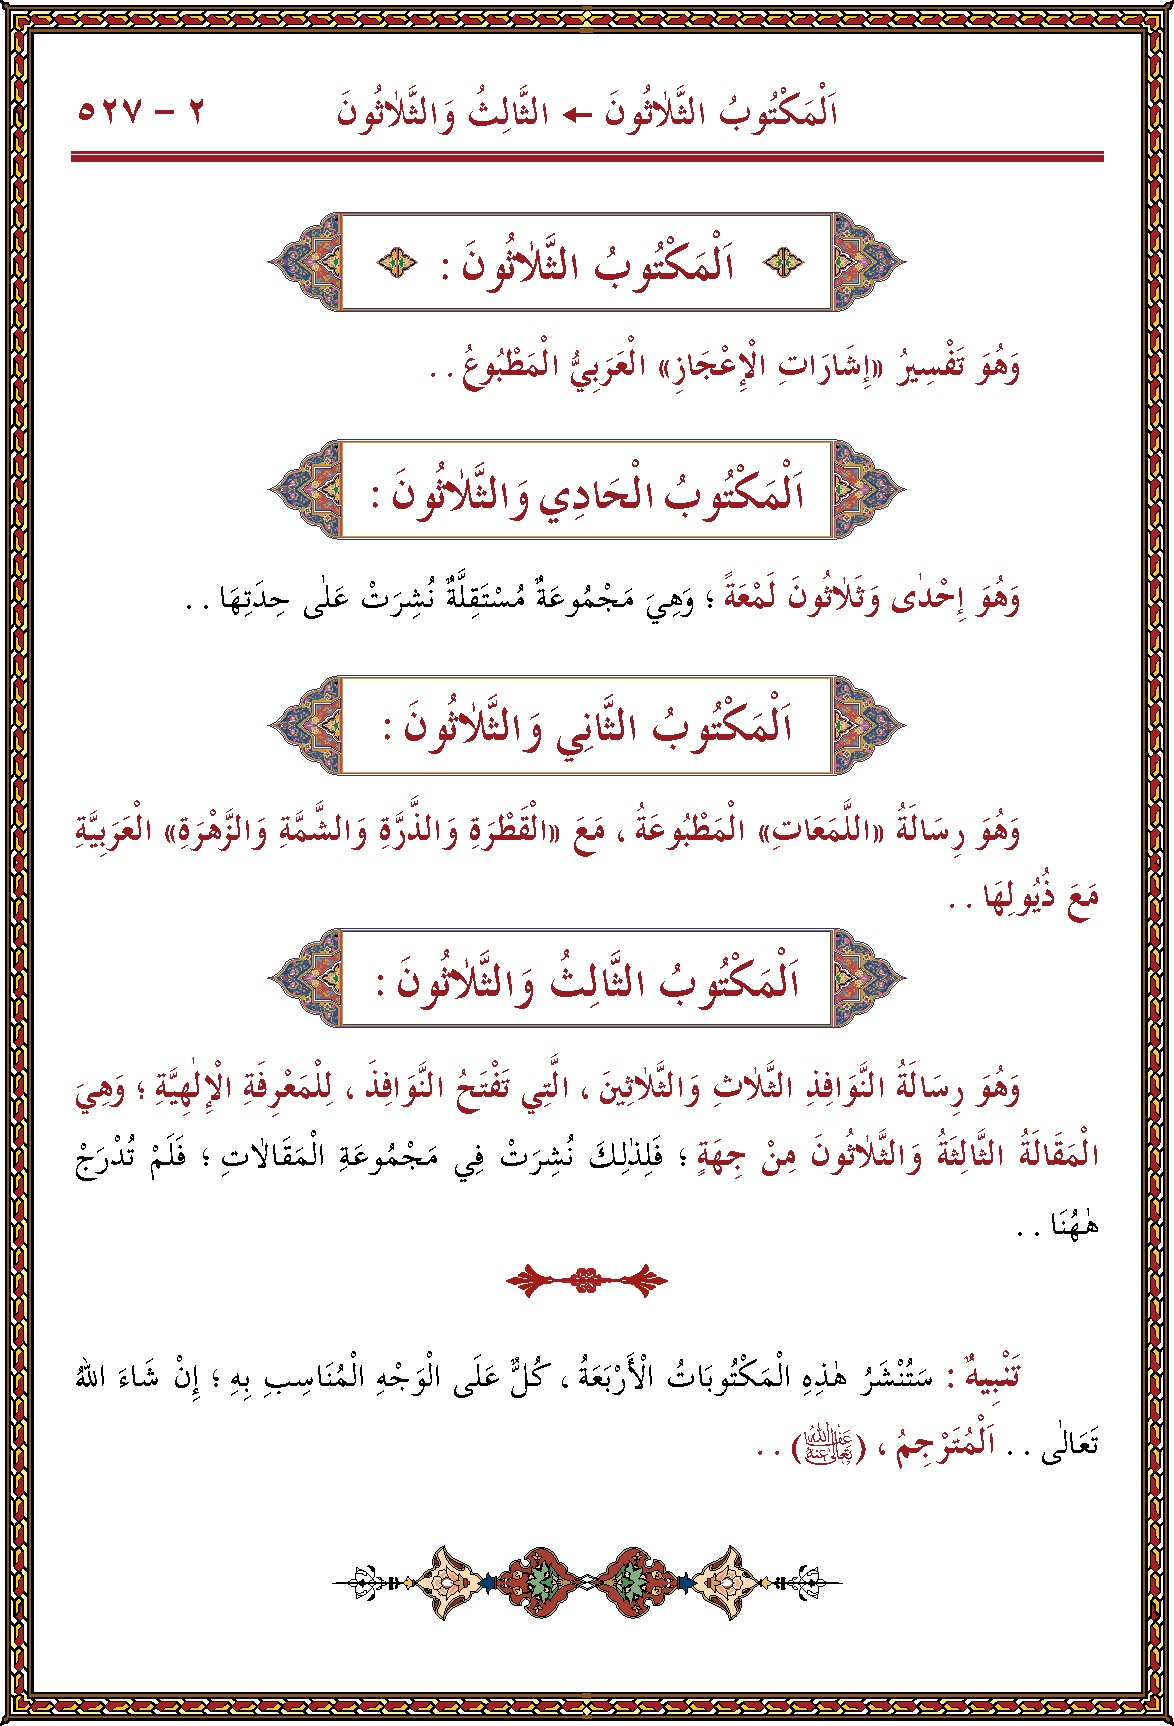 اَلْمَكْتُوبُ الثَّلاٰثُونَ ← الثَّالِثُ وَالثَّلاٰثُونَ ٢ – ٥٢٧
اَلْمَكْتُوبُ الثَّلاٰثُونَ :
وَهُوَ تَفْسِيرُ «إِشَارَاتِ الْإِعْجَازِ» الْعَرَبِيُّ الْمَطْبُوعُ . .
اَلْمَكْتُوبُ الْحَادِي وَالثَّلاٰثُونَ :
وَهُوَ إِحْدٰى وَثَلاٰثُونَ لَمْعَةً ؛ وَهِيَ مَجْمُوعَةٌ مُسْتَقِلَّةٌ نُشِرَتْ عَلٰى حِدَتِهَا . .
اَلْمَكْتُوبُ الثَّانِي وَالثَّلاٰثُونَ :
وَهُوَ رِسَالَةُ «اللَّمَعَاتِ» الْمَطْبُوعَةُ ، مَعَ «الْقَطْرَةِ وَالذَّرَّةِ وَالشَّمَّةِ وَالزَّهْرَةِ» الْعَرَبِيَّةِ
مَعَ ذُيُولِهَا . .
اَلْمَكْتُوبُ الثَّالِثُ وَالثَّلاٰثُونَ :
وَهُوَ رِسَالَةُ النَّوَافِذِ الثَّلاٰثِ وَالثَّلاٰثِينَ ، الَّتِي تَفْتَحُ النَّوَافِذَ ، لِلْمَعْرِفَةِ الْإِلٰهِيَّةِ ؛ وَهِيَ
الْمَقَالَةُ الثَّالِثَةُ وَالثَّلاٰثُونَ مِنْ جِهَةٍ ؛ فَلِذٰلِكَ نُشِرَتْ فِي مَجْمُوعَةِ الْمَقَالاٰتِ ؛ فَلَمْ تُدْرَجْ
هٰهُنَا . .
تَنْبِيهٌ : سَتُنْشَرُ هٰذِهِ الْمَكْتُوبَاتُ الْأَرْبَعَةُ ، كُلٌّ عَلَى الْوَجْهِ الْمُنَاسِبِ بِهِ ؛ إِنْ شَاءَ اللهُ
تَعَالٰى . . اَلْمُتَرْجِمُ ، (عفا الله تعالى عنه) . .